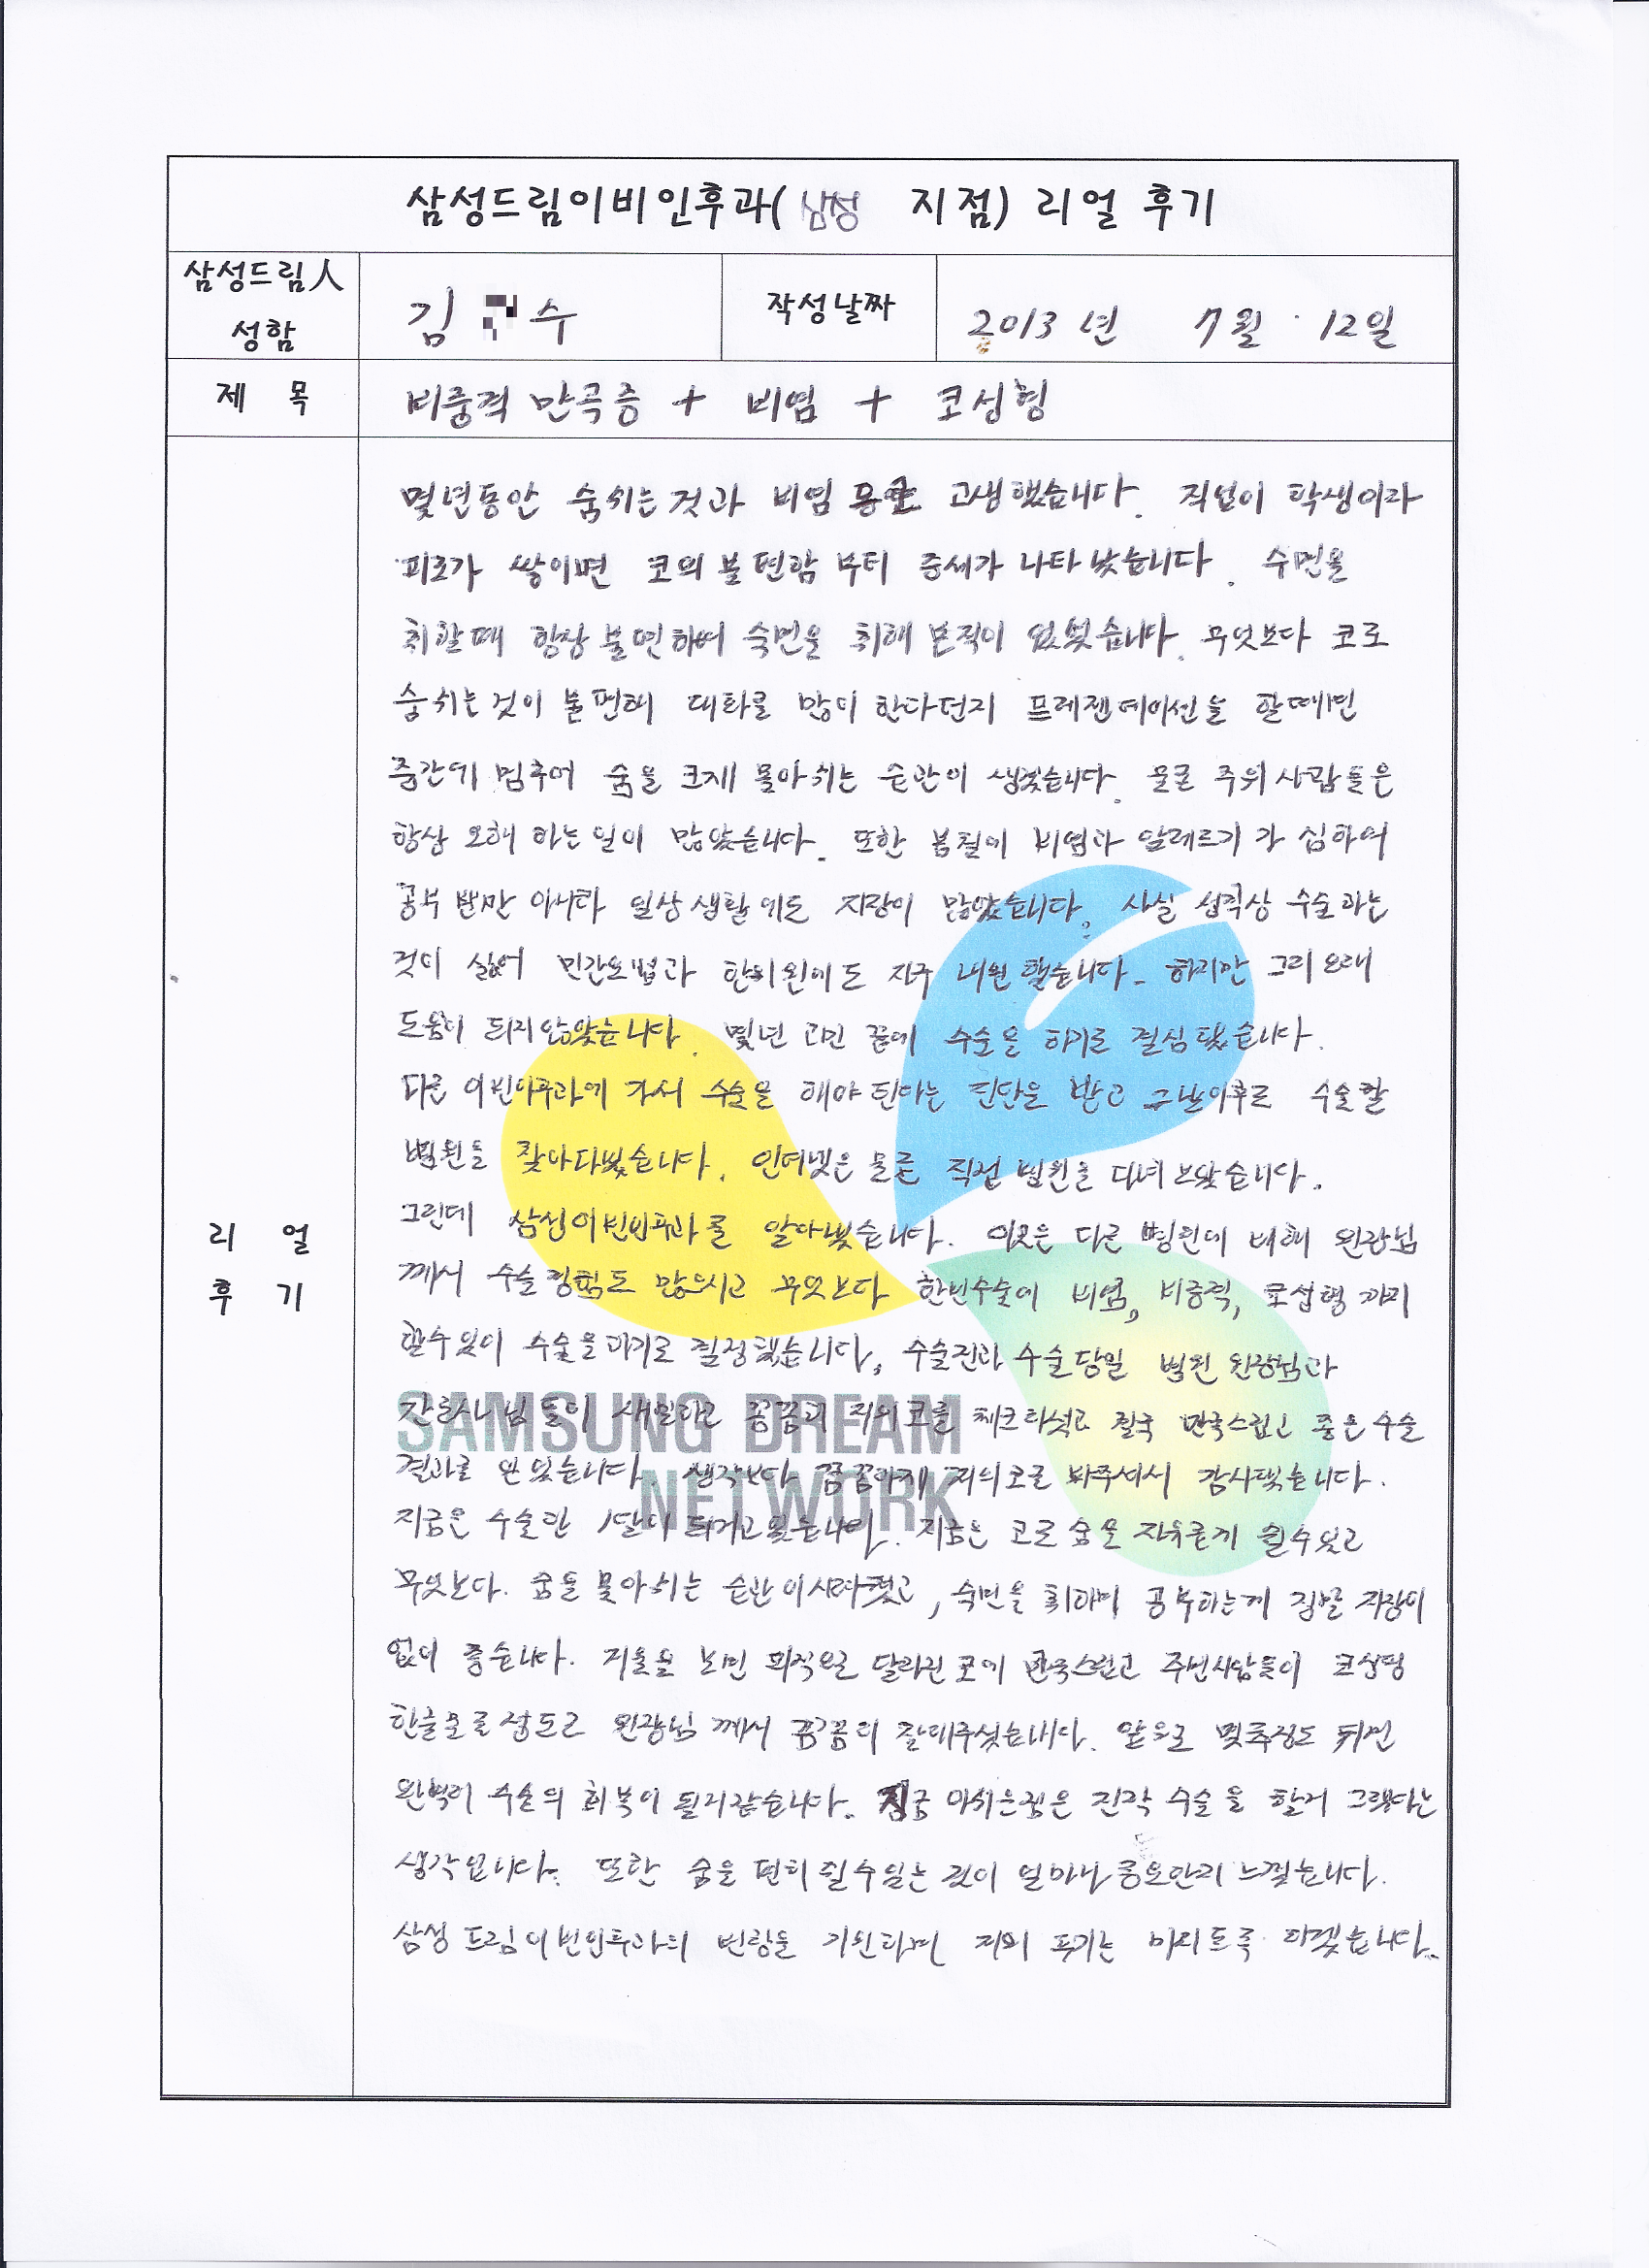 삼성드림이비인후과(삼성 지점) 리얼 후기
삼성드림人
성함
김 수
작성날짜
2013 년 7월 12일
제 목
비중격 만곡증 + 비염 + 코성형
몇년동안 숨쉬는 것과 비염 고생했습니다. 직업이 학생이라
피로가 쌓이면 코의 불편함 부터 증세가 나타났습니다. 수면을
취할때 항상 불편하여 숙면을 취해 본적이 없었습니다. 무엇보다 코로
숨쉬는 것이 불편해 대화를 많이 한다던지 프레젠테이션을 할때면
중간에 멈추어 숨을 크게 몰아쉬는 순간이 생겼습니다. 물론 주위 사람들은
항상 오해 하는 일이 많았습니다. 또한 봄철이 비염과 알레르기 가 심하여
공부 뿐만 아니라 일상 생활에도 지장이 많았습니다. 사실 성격상 수술하는
것이 싫어 민간요법과 한의원에도 자주 내원했습니다. 하지만 그리 오래
도움이 되지않았습니다. 몇년 고민 끝에 수술을 하기로 결심했습니다.
다른 이빈인후과에 가서 수술을 해야 된다는 진단을 받고 그날이후로 수술할
병원을 찾아다녔습니다. 인터넷은 물론 직접 병원을 다녀 보았습니다.
그런데 삼성이빈인후과를 알아냈습니다. 이곳은 다른 병원에 비해 원장님
께서 수술경험도 많으시고 무엇보다 한번수술에 비염, 비중격, 코성형 까지
할수있어 수술을하기로 결정했습니다. 수술전과 수술당일 병원 원장님과
간호사님 들이 세밀하고 꼼꼼히 저의 코를 체크하셨고 결국 만족스럽고 좋은 수술
결과를 얻었습니다. 생각보다 꼼꼼하게 저의코를 봐주셔서 감사했습니다.
지금은 수술한 1달이 되가고있습니다. 지금은 코로 숨을 자유롭게 쉴수있고
무엇보다. 숨을 몰아쉬는 순간이사라졌고, 숙면을 취하며 공부하는게 정말 지장이
없어 좋습니다. 거울을 보면 외적으로 달라진 코에 만족스럽고 주변사람들이 코성형
한줄모를정도로 원장님 께서 꼼꼼히 잘해주셨습니다. 앞으로 몇주정도 되면
완벽히 수술의 회복이 될거같습니다. 지금 아쉬운점은 진작 수술을 할걸 그랬다는
생각입니다. 또한 숨을 편히 쉴수있는 것이 얼마나 중요한지 느꼈습니다.
삼성 드림이빈인후과의 번창을 기원하며 저의 후기는 마치도록 하겠습니다.
리 얼
후 기
SAMSUNG DREAM
NETWORK